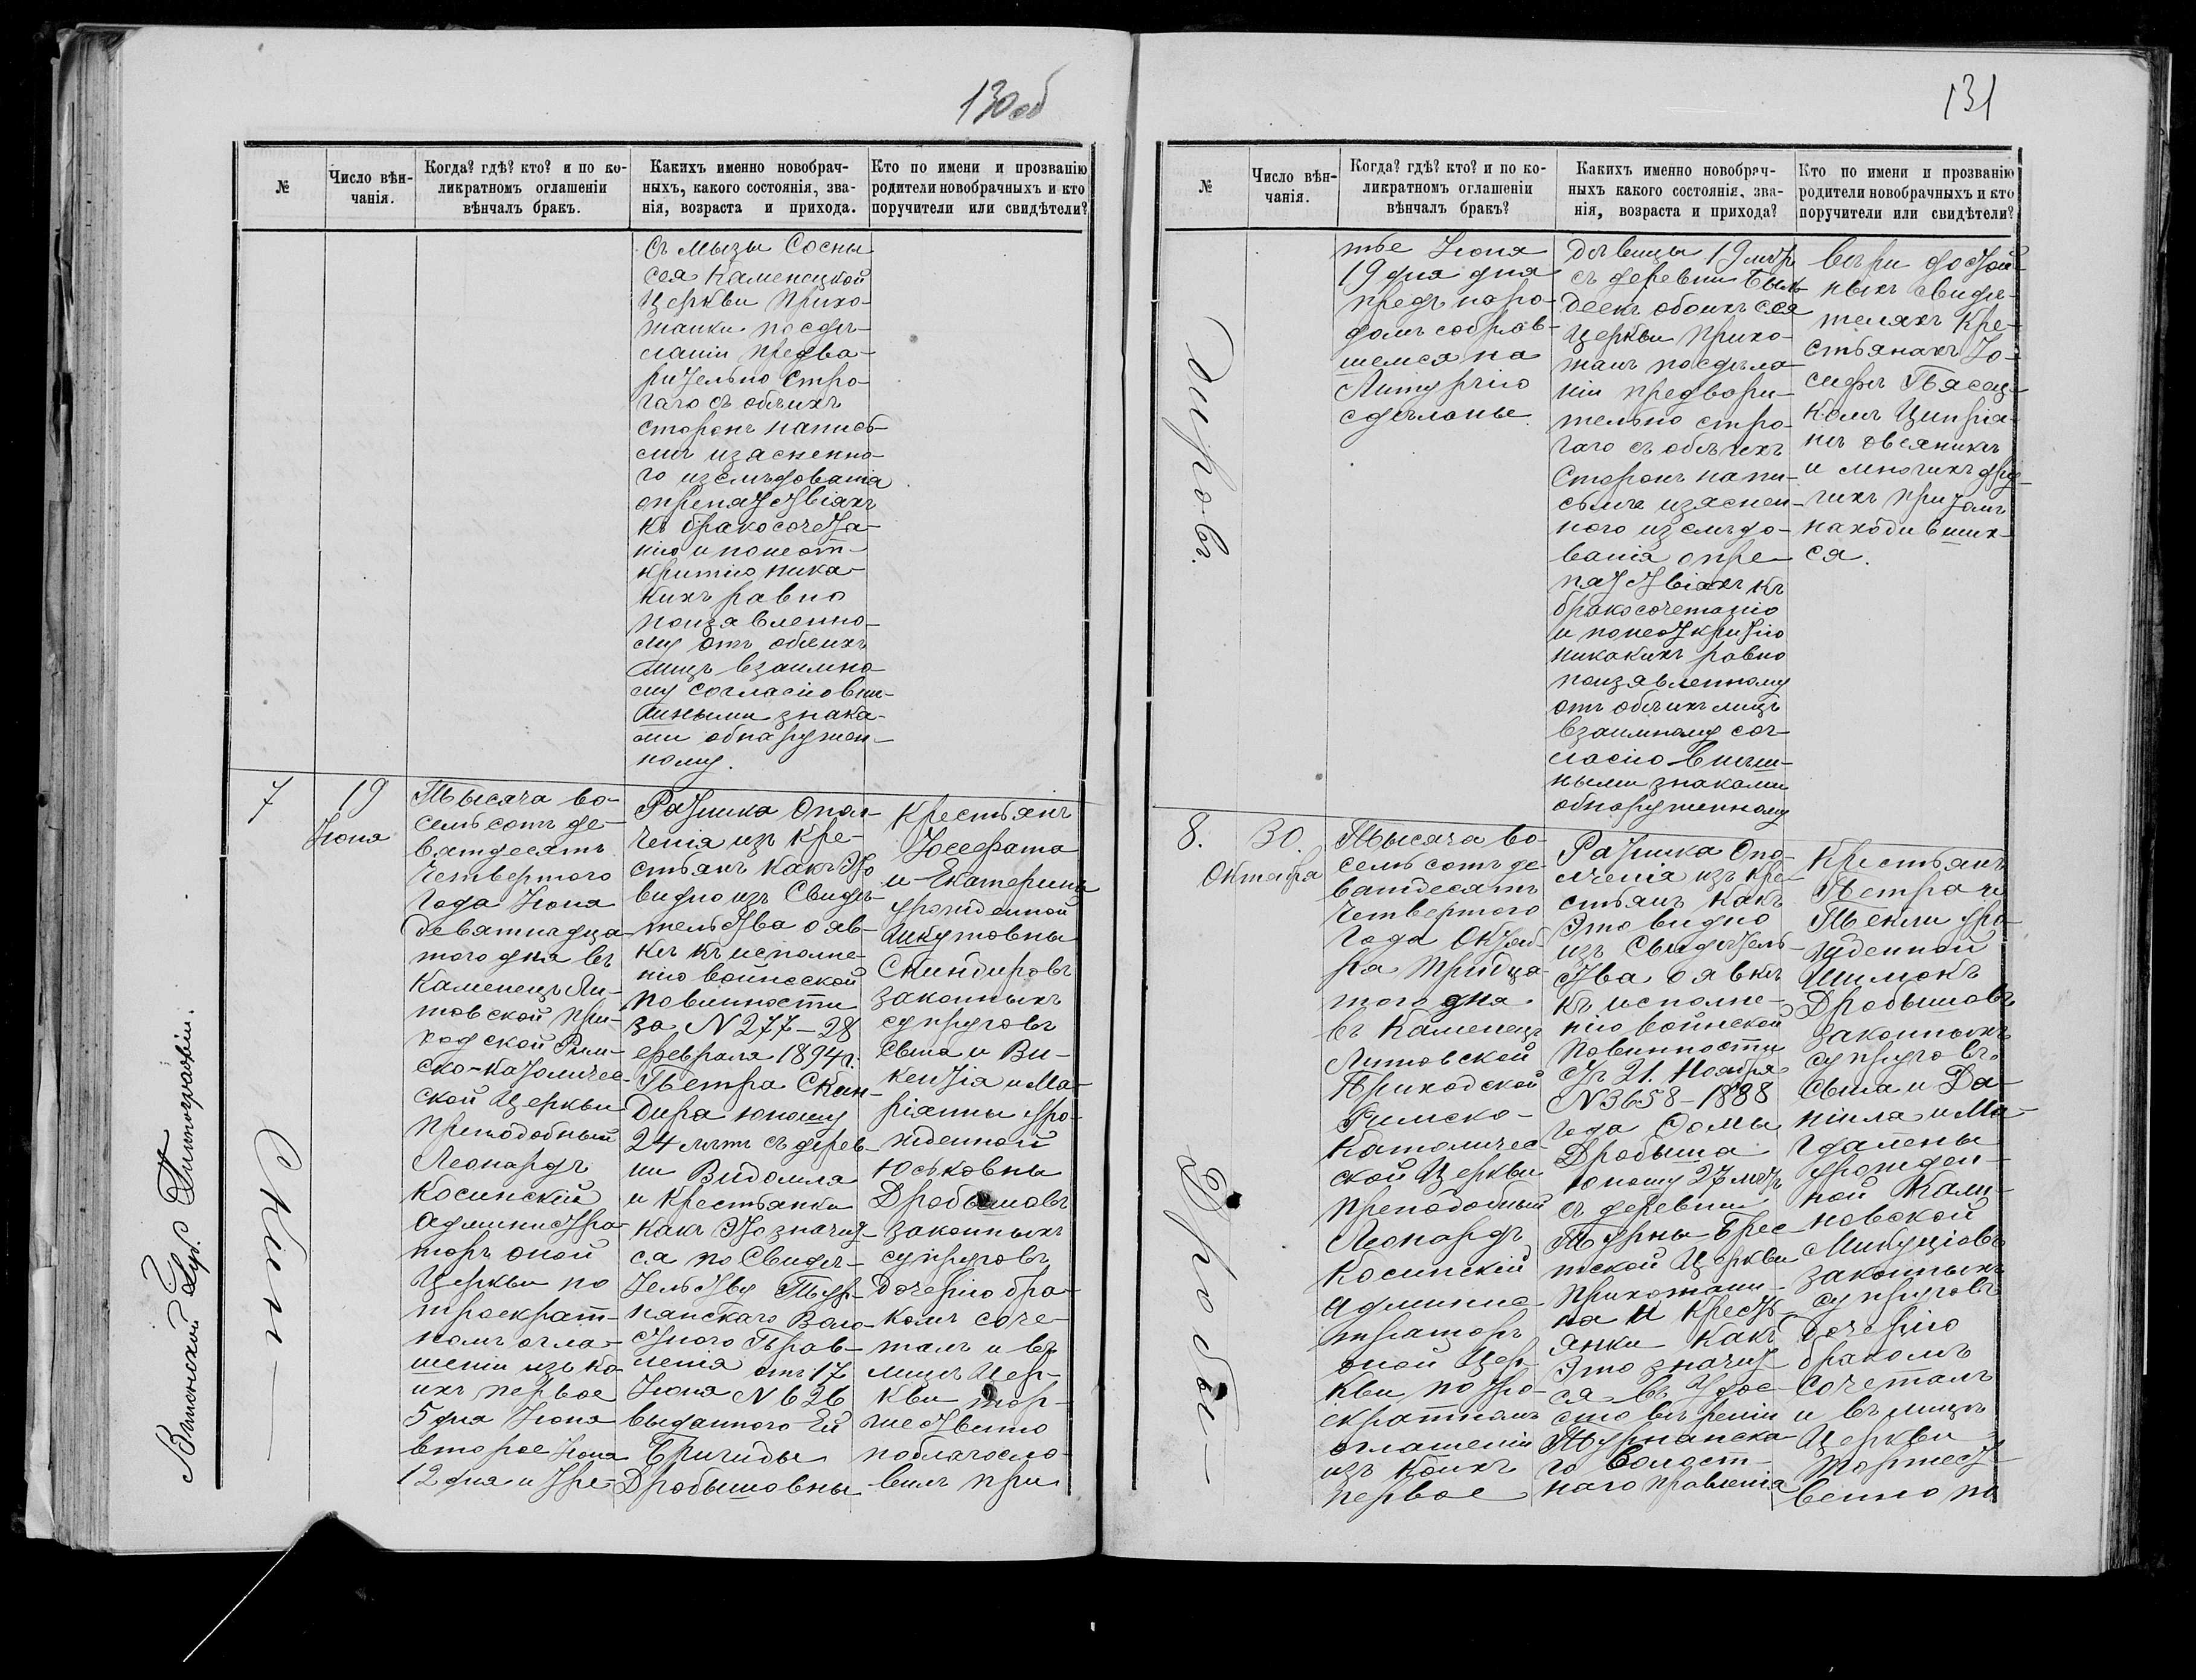 130 об
№
Число вѣн-
чанія.
Когда? гдѣ? кто? и по ко-
ликратномъ оглашеніи
вѣнчалъ бракъ.
Какихъ именно новобрач-
ныхъ, какого состоянія, зва-
нія, возраста и прихода.
Кто по имени и прозванію
родители новобрачныхъ и кто
поручители или свидѣтели?
съ мызы Сосны
сея Каменецкой
Церкви Прихо-
жанки по сдѣ-
ланіи предва-
рительно стро-
гаго съ обѣихъ
сторонъ напись-
мѣ изясненно-
го изслѣдованія
о препятствіяхъ
къ бракосочета-
нію и понеот-
критію ника-
кихъ равно
поизявленно-
му отъ обѣихъ
лицъ взаимно-
му согласію внѣ-
шными знака-
ми обнаружен-
ному.
7
19
Іюня
Скин-
Тысяча во-
семьсотъ де-
вятдесятъ
Четвертого
Года Іюня
девятнадца-
того дня въ
Каменецъ Ли-
товской при-
ходской Рим-
ско-католичес-
ской Церкви
преподобный
Леонардъ
Косинскій
Администра-
торъ оной
Церкви по
троекрат-
номъ огла-
шеніи изъ ко-
ихъ первое
5 дня Іюня
второе Іюня
12 дня и тре-
Ратника Опол-
ченія изъ кре-
стьянъ какъ это
видно изъ Свидѣ-
тельства о яв-
кѣ къ исполне-
нію воинской
повинности
за N 277 - 28
февраля 1894 г.
Петра Скин-
дира юношу
24 лѣтъ съ дерев-
ни Видомля
и крестьянки
какъ это значит-
ся по Свидѣ-
тельству Тур-
нанскаго Воло-
стного Прав-
ленія отъ 17
Іюня N 626
выданного Ей
Бригиды
Дробышовны
Крестьянъ
Іосефата
и Екатерины
урожденной
Шкутовны
Скиндировъ
законныхъ
супруговъ
сына и Ви-
кентія и Ма-
ріанны уро-
жденной
Юськовны
Дробышовъ
законныхъ
супруговъ
дочерію бра-
комъ соче-
талъ и въ
лицѣ Цер-
кви тор-
жественно
поблагосло-
вилъ при
Виленской Губ. Типографіи.
131
№
Число вѣн-
чанія.
Когда? гдѣ? кто? и по ко-
ликратномъ оглашеніи
вѣнчалъ бракъ?
Какихъ именно новобрач-
ныхъ какого состоянія, зва-
нія, возраста и прихода?
Кто по имени и прозванію
родители новобрачныхъ и кто
поручители или свидѣтели?
дировъ.
тье Іюня
19 дня дня
предъ наро-
домъ собрав-
шемся на
Литургію
сдѣланье.
дѣвицы 19 лѣтъ
съ деревни Бык-
деекъ обоихъ сея
Церкви Прихо-
жанъ по сдѣла-
ніи предвори-
тельно стро-
гаго съ обѣихъ
сторонъ напи-
сьмѣ изяснен-
ного изслѣдо-
ванія о пре-
пятствіяхъ къ
бракосочетанію
и понеоткритію
никакихъ равно
поизявленному
отъ обѣихъ лицъ
взаимному сог-
ласію внѣш-
ными знаками
обнаруженному
вѣри достой-
ныхъ свидѣ-
теляхъ Кре-
стьянахъ Іо-
сифѣ Пясец-
комъ Ципріа-
нѣ Овсяникъ
и многихъ дру-
гихъ при томъ
находивших-
ся.
8.
30.
Октября
Дробы-
Тысяча во-
семьсотъ де-
вятдесятъ
четвертого
Года Октяб-
ря тридца-
того дня
въ Каменецъ
Литовской
Приходской
Римско-
Католичес-
ской Церкви
преподобный
Леонардъ
Косинскій
Админис-
траторъ
оной Цер-
кви по тро-
екратномъ
оглашеніи
изъ коихъ
первое
Ратника Опо-
лченія изъ кре-
стьянъ какъ
Это видно
изъ Свидѣтель-
ства о явкѣ
къ исполне-
нію воинской
повинности
отъ 21. Ноября
N 3658 - 1888
года Ѳомы
Дробыша
юношу 27 лѣтъ
съ деревни
Турны Брес-
тской Церкви
Прихожани-
на и Кресть-
янки какъ
Это значит-
ся въ Удос-
стовѣреніи
Турнанска-
го Волост-
наго правленія
Крестьянъ
Петра и
Текли уро-
жденной
Шимокъ
Дробышовъ
законныхъ
супруговъ
сына и Да-
ніила и Ма-
гдалены
урожден-
ной Кали-
новской
Микуціовъ
законныхъ
супруговъ
дочерію
бракомъ
сочеталъ
и въ лицѣ
Церкви
торжест-
венно по